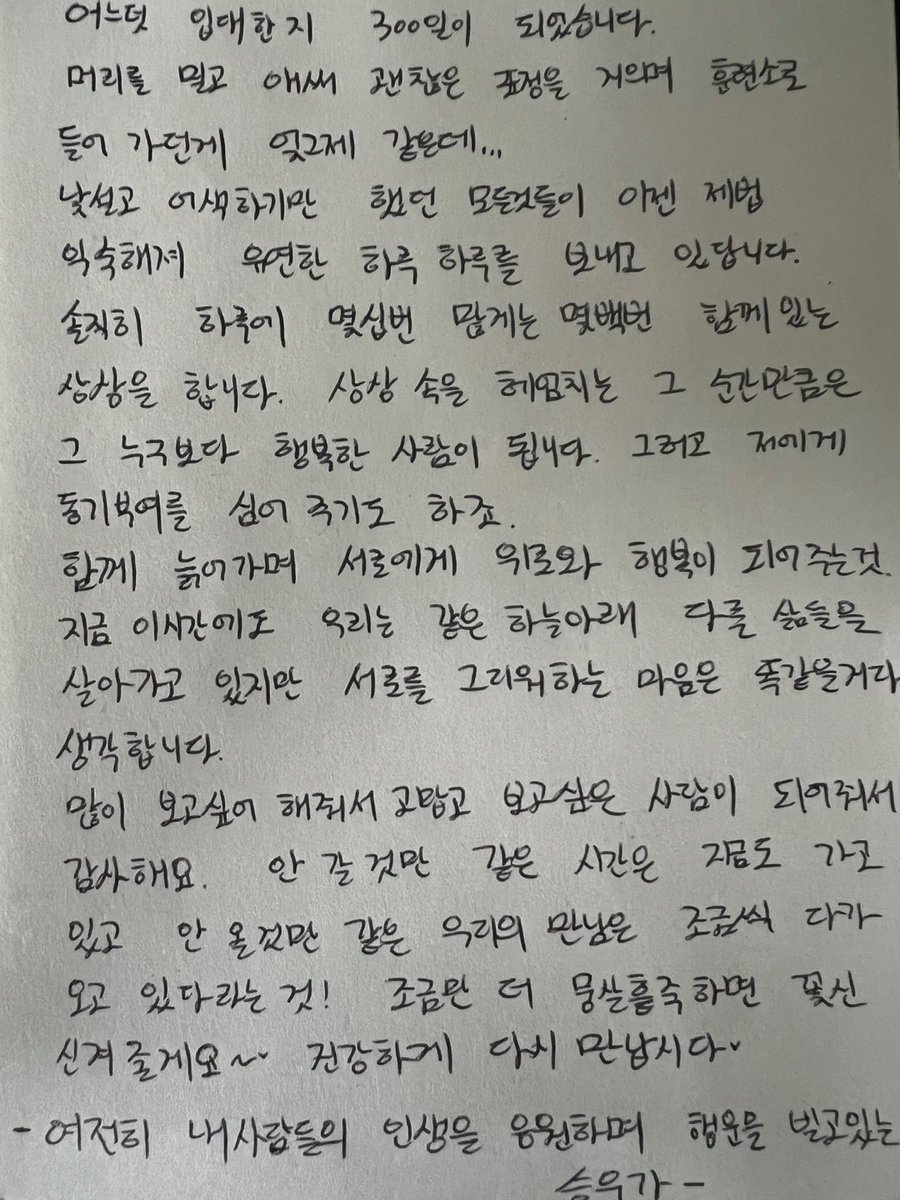 어느덧 입대한지 300일이 되었습니다.
머리를 밀고 애써 괜찮은 표정을 지으며 훈련소로
들어 가던게 엊그제 같은데...
낯설고 어색하기만 했던 모든것들이 이젠 제법
익숙해져 유연한 하루 하루를 보내고 있답니다.
솔직히 하루에 몇십번 많게는 몇백번 함께 있는
상상을 합니다. 상상 속을 헤엄치는 그 순간만큼은
그 누구보다 행복한 사람이 됩니다. 그리고 저에게
동기부여를 심어 주기도 하죠.
함께 늙어가며 서로에게 위로와 행복이 되어주는것.
지금 이시간에도 우리는 같은 하늘아래 다른 삶들을
살아가고 있지만 서로를 그리워하는 마음은 똑같을거라
생각합니다.
많이 보고싶어 해줘서 고맙고 보고싶은 사람이 되어줘서
감사해요. 안 갈 것만 같은 시간은 지금도 가고
있고 안 올것만 같은 우리의 만남은 조금씩 다가
오고 있다라는 것! 조금만 더 뭉살흩죽하면 꽃신
신겨 줄게요~ 건강하게 다시 만납시다
- 여전히 내사람들의 인생을 응원하며 행운을 빌고있는
승우가 -